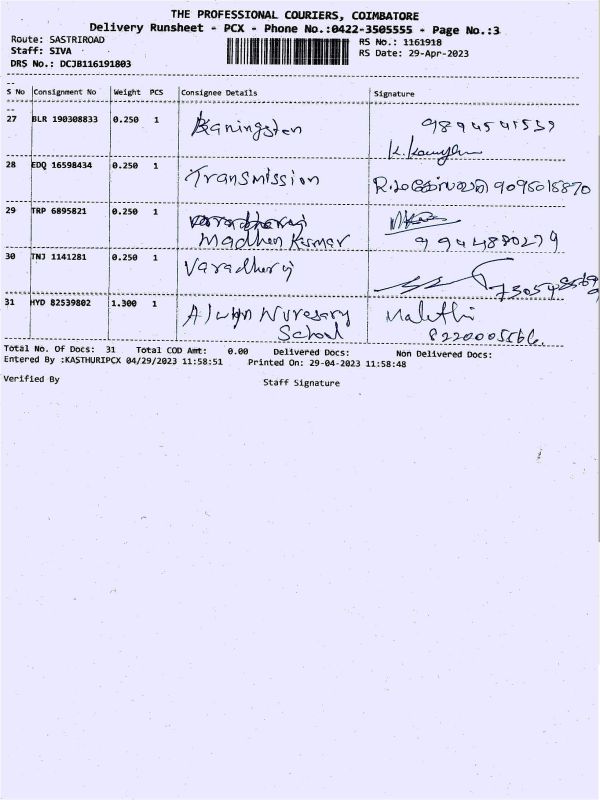 THE PROFESSIONAL COURIERS, COIMBATORE
Delivery Runsheet - PCX - Phone No.:0422-3505555 - Page No.:3
Route: SASTRIROAD
Staff: SIVA
DRS No.: DCJB116191803
RS No.: 1161918
RS Date: 29-Apr-2023
S No Consignment No Weight PCS Consignee Details Signature
27 BLR 190308833 0.250 1
28 EDQ 16598434 0.250 1 Transmission 9095015870
29 TRP 6895821 0.250 1
Madhen Kumar 9944880279
30 TNJ 1141281 0.250 1 Varadheraj
31 HYD 82539802 1.300 1 Nuresary Malethi
School
Total No. Of Docs: 31 Total COD Amt: 0.00 Delivered Docs: Non Delivered Docs:
Entered By :KASTHURIPCX 04/29/2023 11:58:51 Printed On: 29-04-2023 11:58:48
Verified By Staff Signature